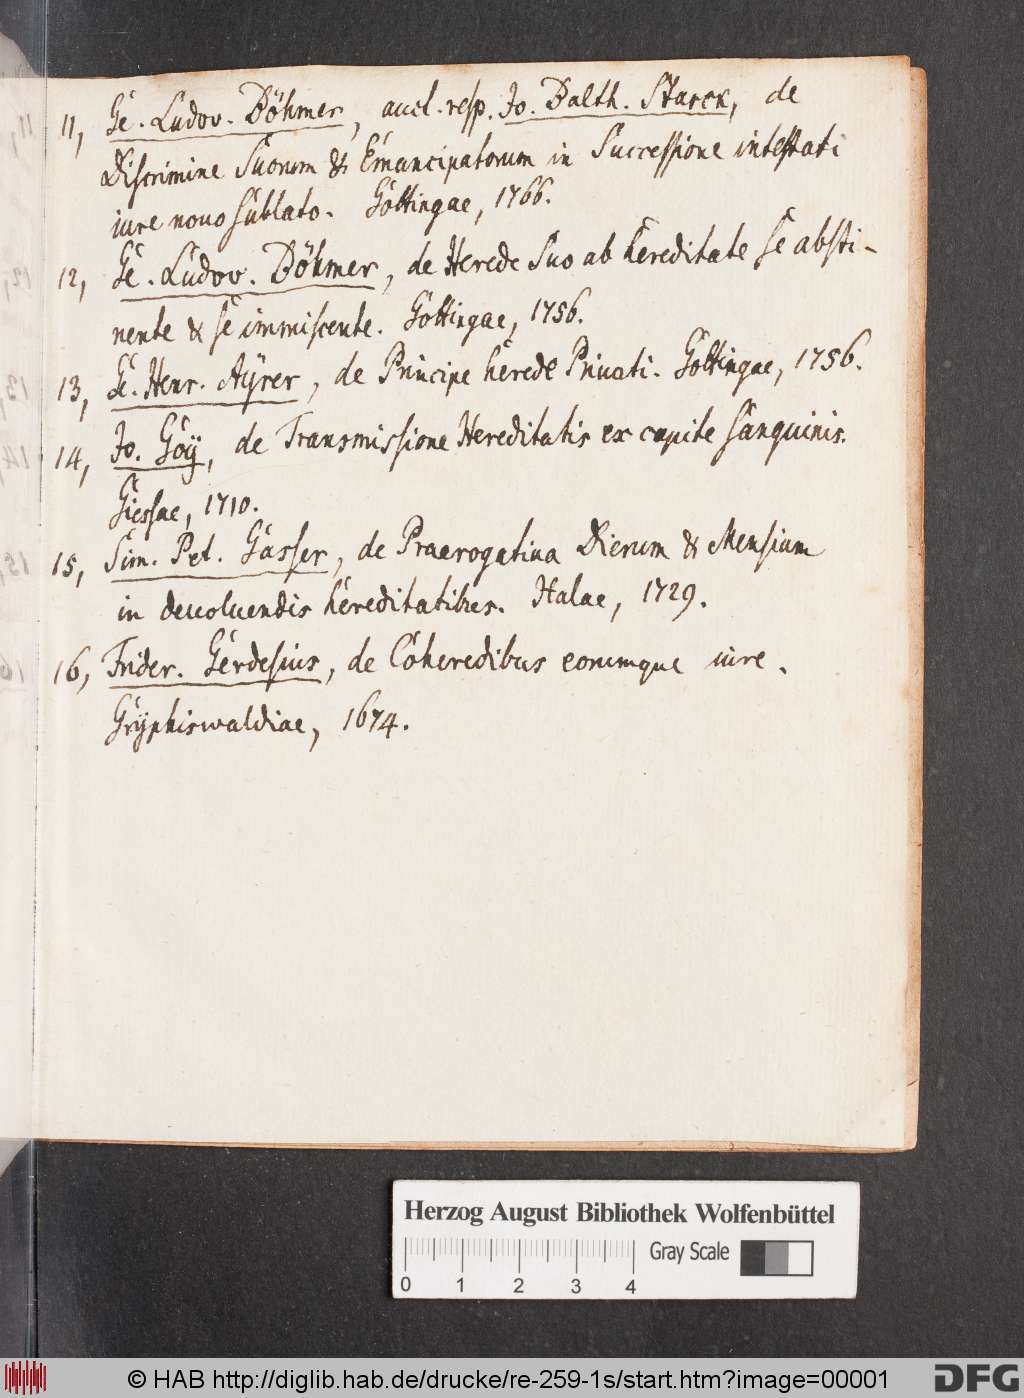 11, Ge. Ludov. Böhmer, auct. resp. Jo. Balth. Starck, de
Discrimine Suorum & Emancipatorum in Successione intestati
iure nouo sublato. Göttingae, 1766.
12, Ge. Ludov. Böhmer, de Herede Suo ab hereditate se absti-
nente & se immiscente. Göttingae, 1756.
13, Ge. Henr. Aÿrer, de Principe herede Priuati. Göttingae, 1756.
14, Jo. Göÿ, de Transmissione Hereditatis ex capite Sanguinis.
Giessae, 1710.
15, Sim. Pet. Gasser, de Praerogatiua Dierum & Mensium
in deuoluendis hereditatibus. Halae, 1729.
16, Frider. Gerdesius, de Coheredibus eorumque iure.
Grÿphiswaldiae, 1674.
Herzog August Bibliothek Wolfenbüttel
Gray Scale
0 1 2 3 4
© HAB http://diglib.hab.de/drucke/re-259-1s/start.htm?image=00001
DFG